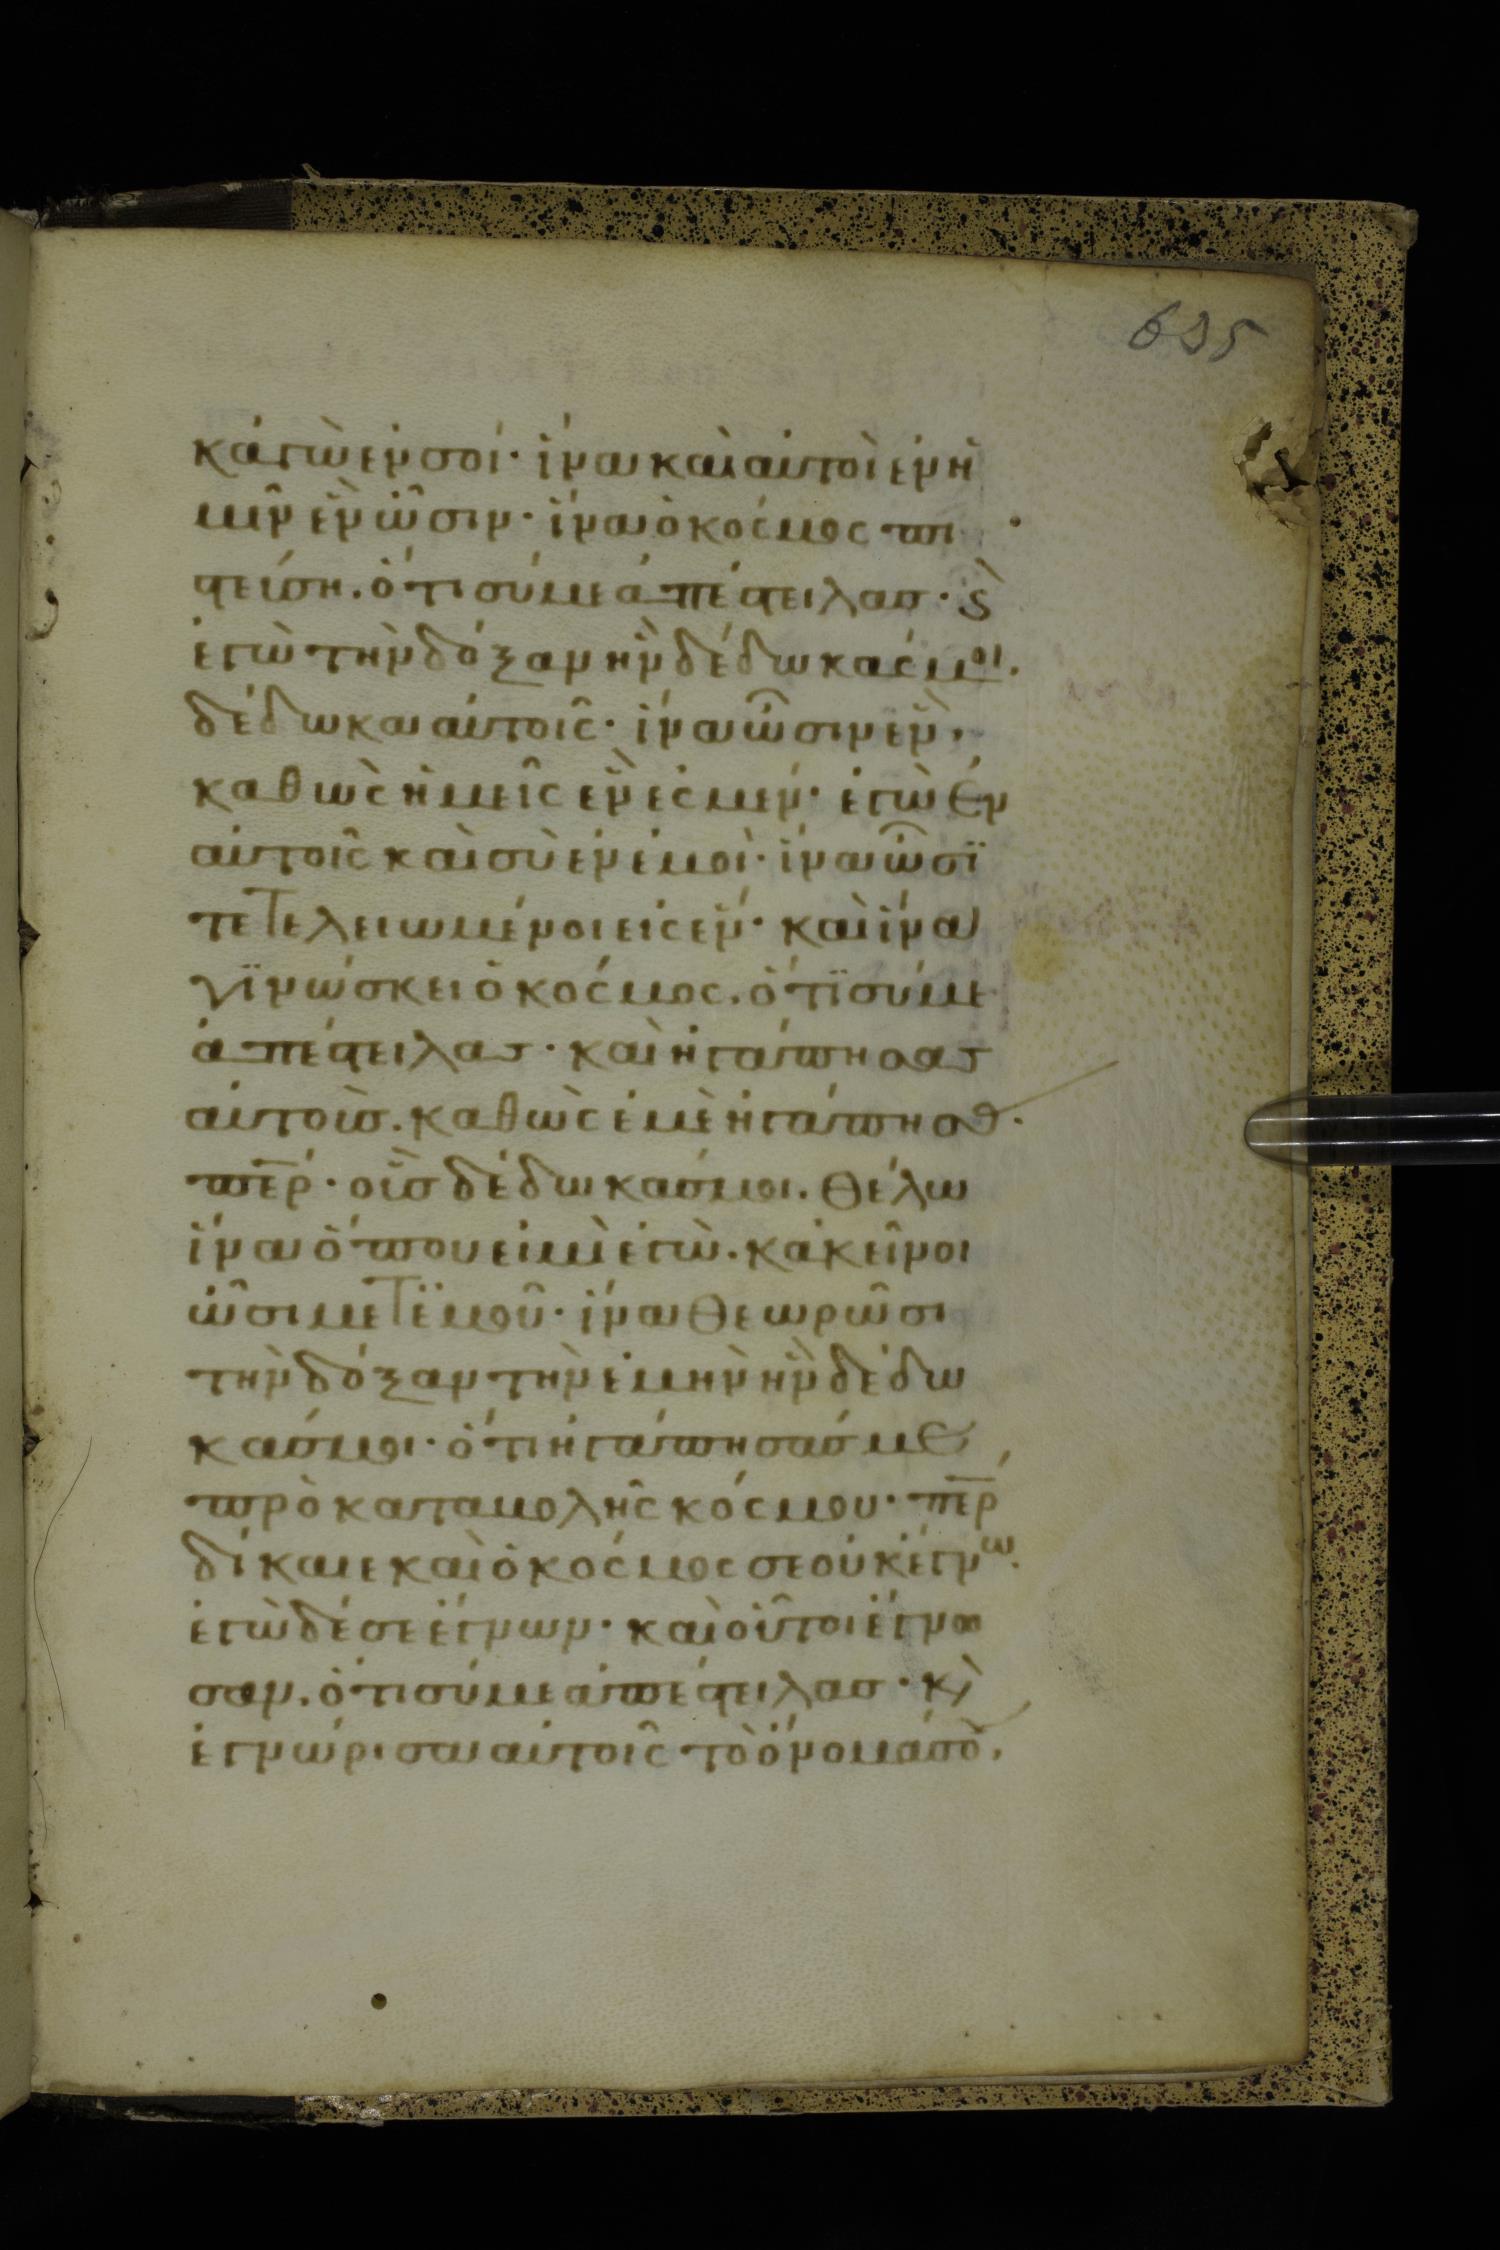 635
κἀγὼ ἐν σοί· ἵνα καὶ αὐτοὶ ἐν ἡ
μῖν ἓν ὦσιν· ἵνα ὁ κόσμος πι
στείση. ὅτι σύ με ἀπέστειλας· κ(αὶ)
ἐγὼ τὴν δόξαν ἣν δέδωκάς μοι.
δέδωκα αὐτοῖς· ἵνα ὦσιν ἓν,
καθὼς ἡμεῖς ἓν ἐσμέν· ἐγὼ ἐν
αὐτοῖς καὶ σὺ ἐν ἐμοὶ· ἵνα ὦσϊ
τετελειωμένοι εἰς ἕν· καὶ ἵνα
γϊνώσκει ὁ κόσμος. ὅτϊ σύ με
ἀπέστειλας· καὶ ἠγάπησας
αὐτοὺς. καθὼς ἐμὲ ἠγάπησας·
π̅ε̅ρ· οὓς δέδωκάς μοι. θέλω
ἵνα ὅπου εἰμὶ ἐγὼ. κἀκεῖνοι
ὦσι μετ ἐμοῦ· ἵνα θεωρῶσι
τὴν δόξαν τὴν ἐμὴν ἣν δέδω
κάς μοι· ὅτι ἠγάπησάς με
πρὸ καταβολῆς κόσμου· π̅ε̅ρ
δίκαιε καὶ ὁ κόσμος σε οὐκ ἔγνω.
ἐγὼ δέ σε ἔγνων· καὶ οὗτοι ἔγνω
σαν. ὅτι σύ με ἀπέστειλας· κ(αὶ)
ἐγνώρισα αὐτοῖς τὸ ὄνομά σου.